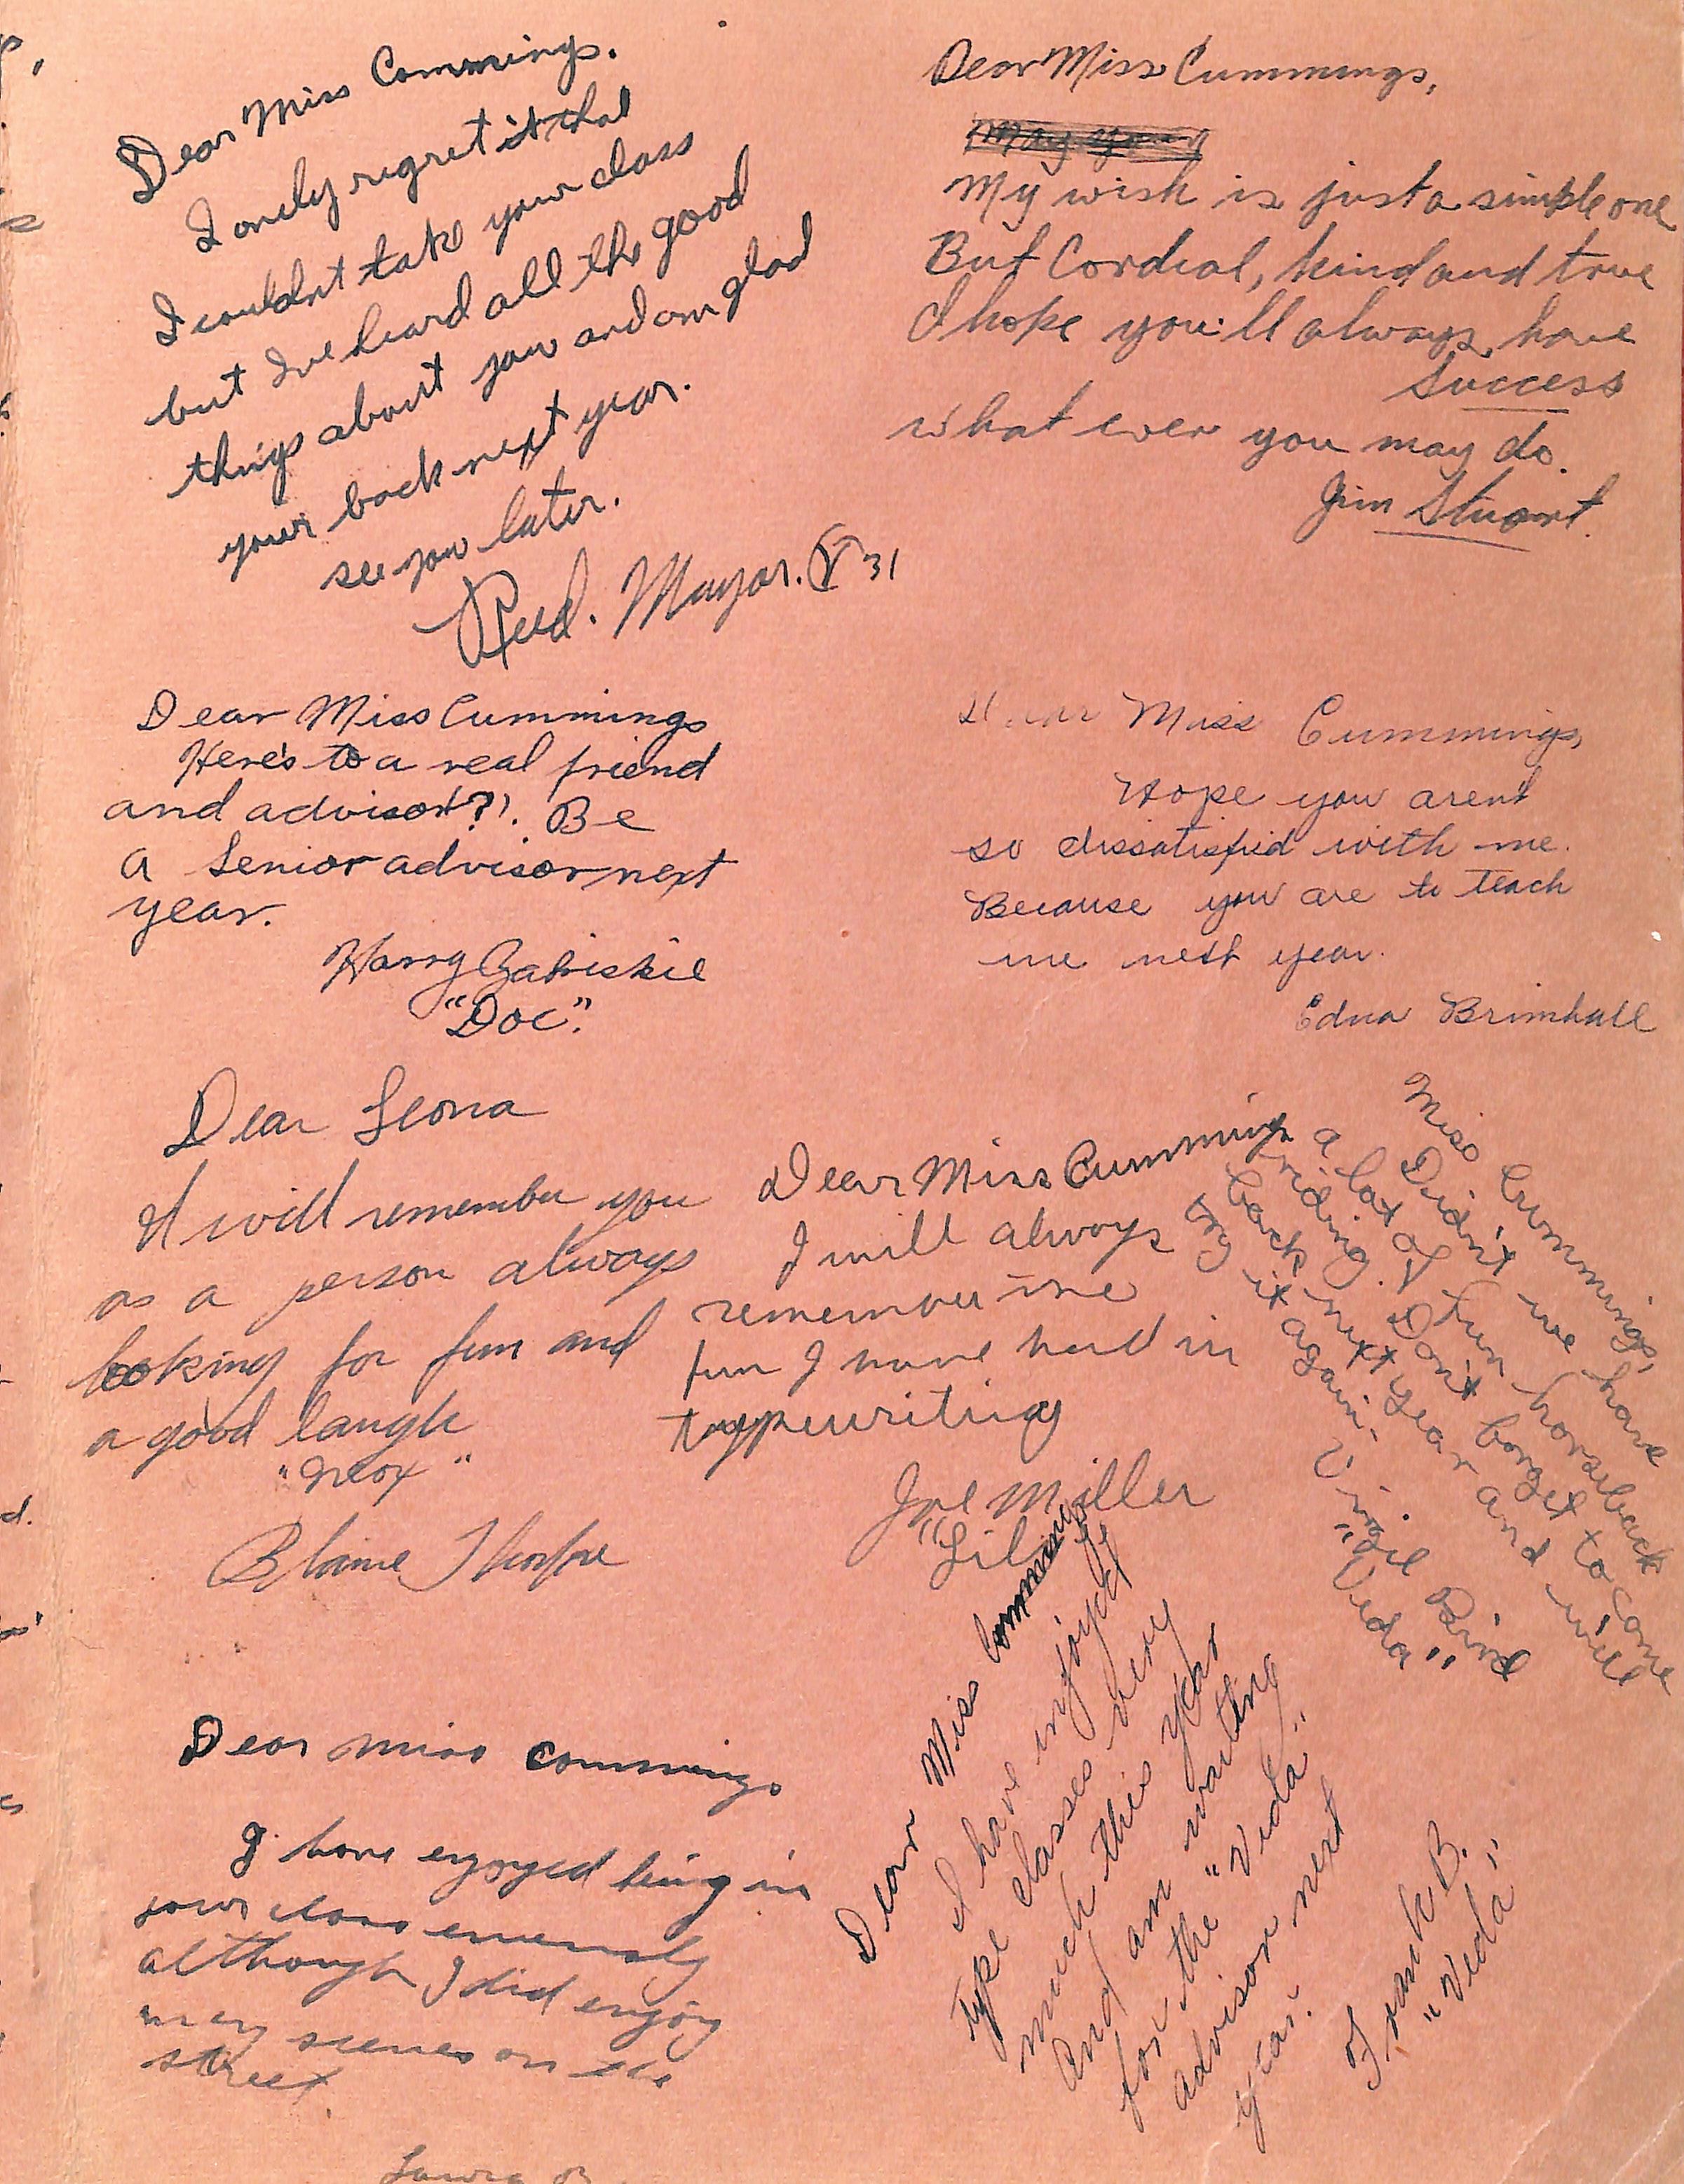 Dear Miss Commings.
I onely regret it that
I couldnt take your class
but I've heard all the good
things about you and am glad
your back next year.
see you later.
Reed. Mayor. 31
Dear Miss Cummings,
May you
My wish is just a simple one
But Cordial, kind and true
I hope you'll always have
success
what ever you may do.
Jim Stuart.
Dear Miss Cummings
Here's to a real friend
and advisor?!. Be
a Senior advisor next
year.
Harry Zabriskie
"Doc".
Dear Miss Cummings,
Hope you arent
so dissatisfied with me.
Because you are to teach
me next year.
Edna Brimhall
Dear Leona
I will remember you
as a person always
looking for fun and
a good laugh
Blaine Thorpe
Dear Miss Cummings
I will always
remember the
fun I have had in
typewriting
Joe Miller
Miss Cummings,
Didn't we have
a lot of fun horseback
riding. Don't forget to come
back next year and we'll
try it again.
Virgie Bird
"Vida"
Dear Miss Commings
I have injoyed
type classes very
much this year
and am waiting
for the "Vida"
advisor next
year.
Frank B.
"Vida"
Dear miss commings
I have enjoyed being in
your class
although I did enjoy
scenes on the
street
Laura B